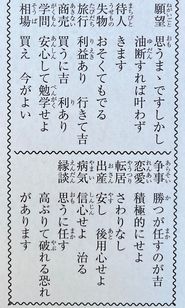 願望 思うまゝですしかし
油断すれば叶わず
待人 きます
失物 おそくてもでる
旅行 利益あり 行きて吉
商売 買うに吉 利あり
学問 安心して勉学せよ
相場 買え 今がよい
争事 勝つが任すのが吉
恋愛 積極的にせよ
転居 さわりなし
出産 安し 後用心せよ
病気 信心せよ 治る
縁談 思うに任す
高ぶりて破れる恐れ
があります